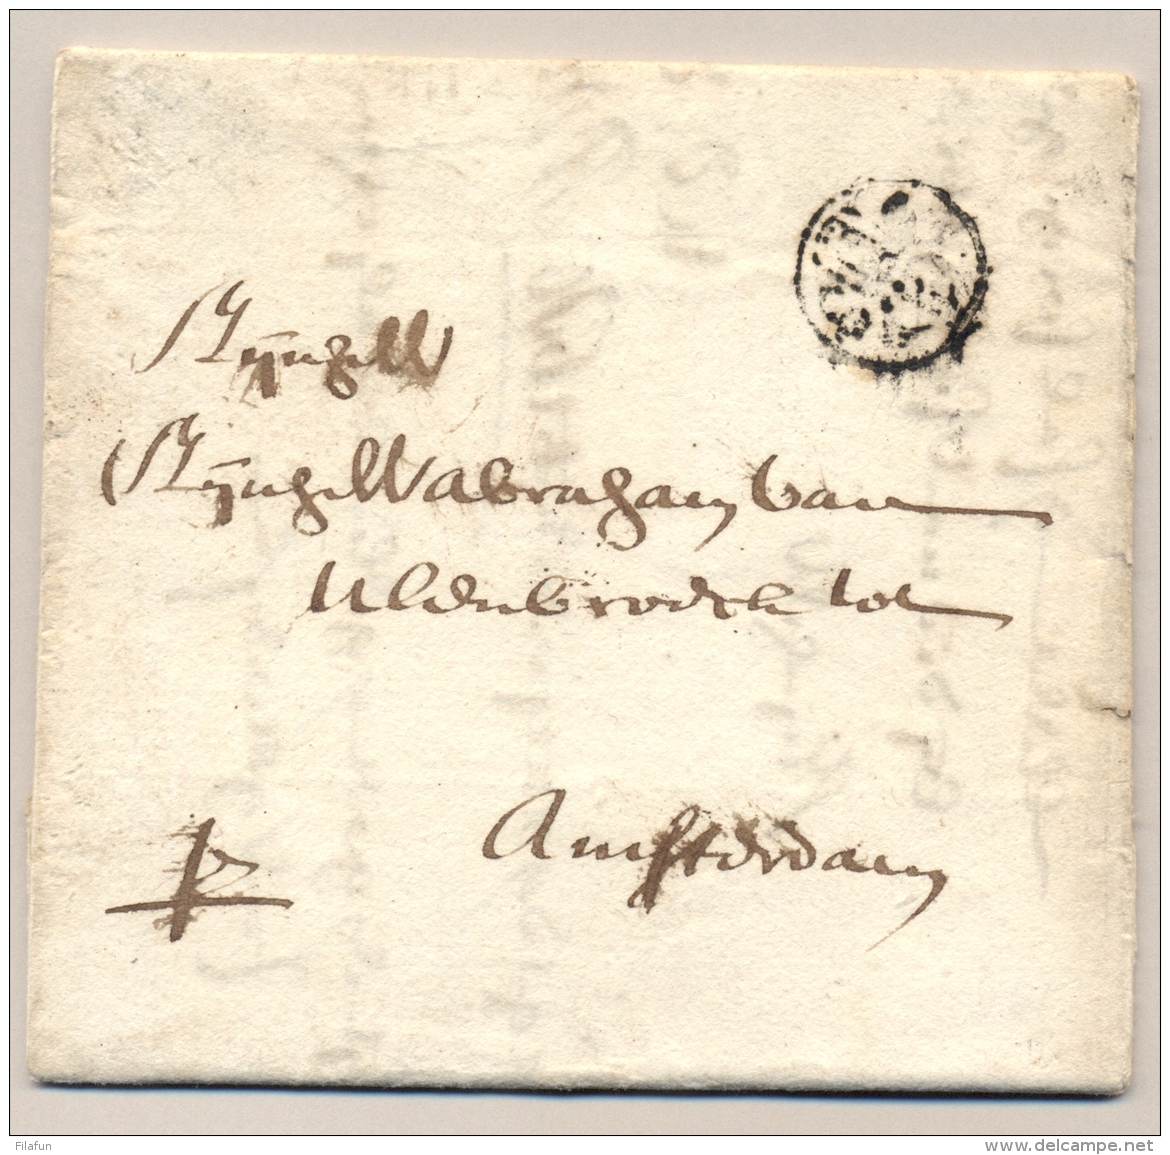 Mijnheer
Mijnheer abraham van
uldenbroek tot
Amsterdam
p
Filafun
www.delcampe.net